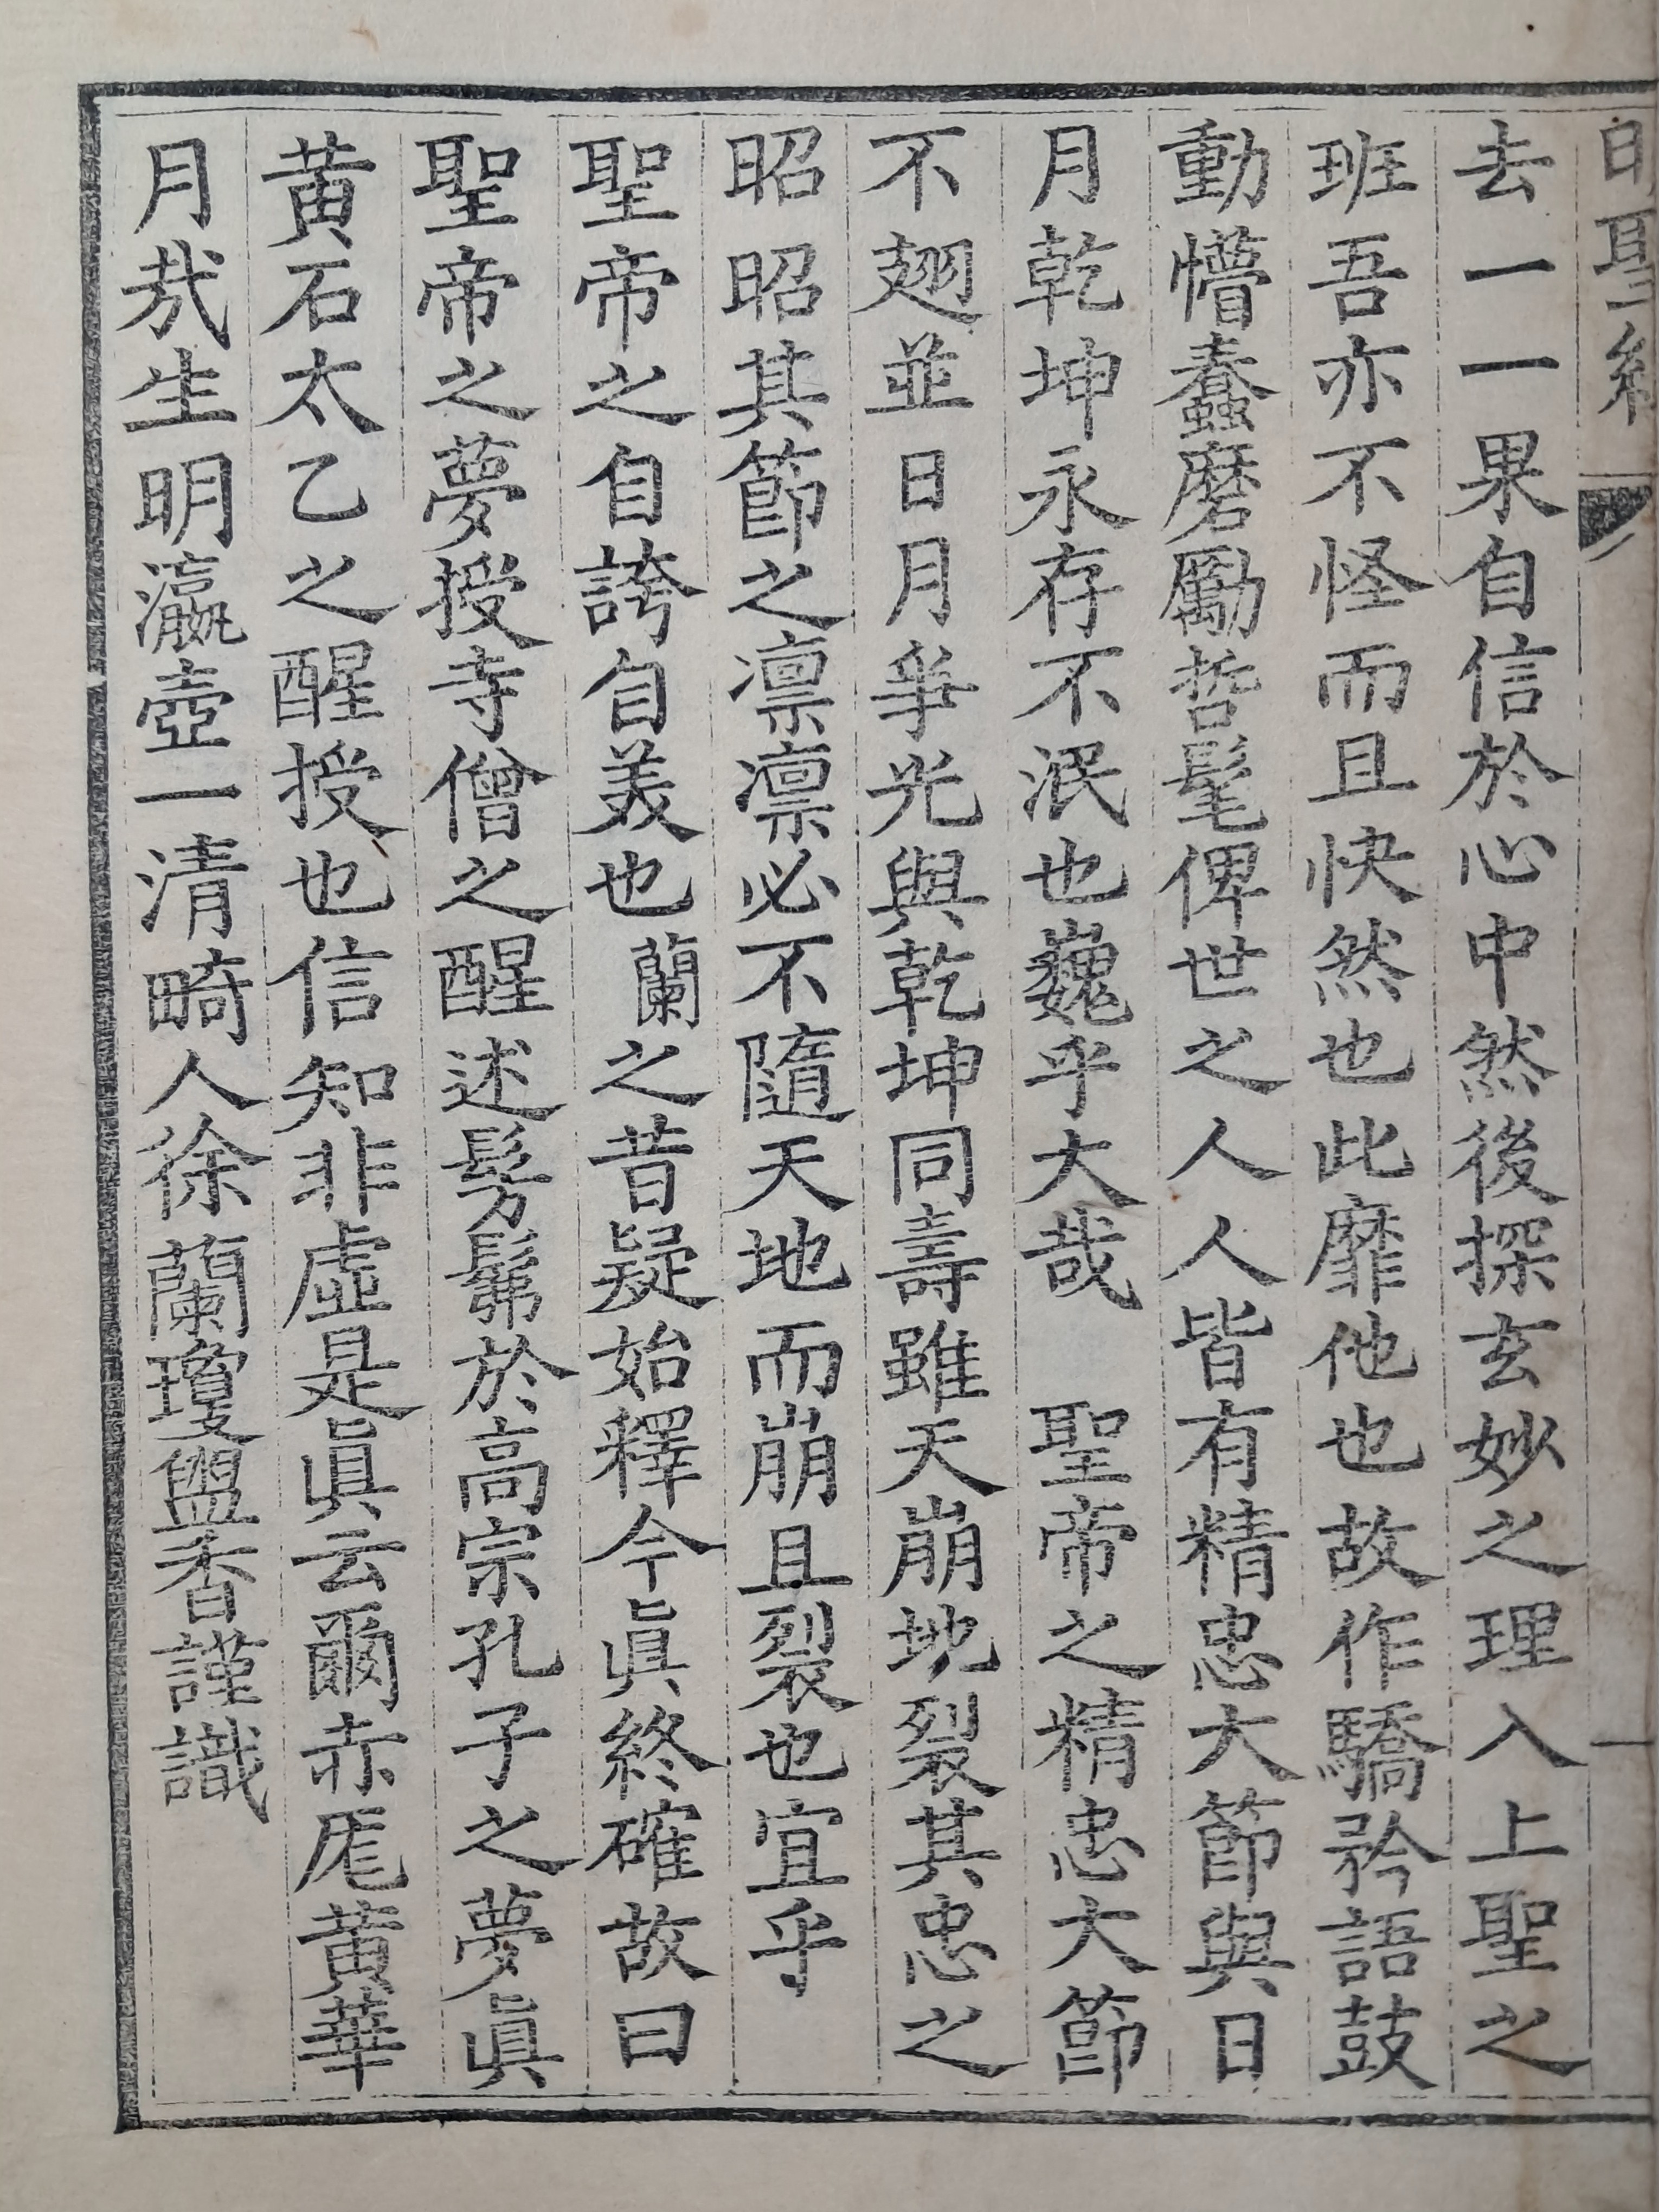 明聖經
一
去一一果自信於心中然後探玄妙之理入上聖之
班吾亦不怪而且快然也此靡他也故作驕矜語鼓
動懵蠢磨勵哲髦俾世之人人皆有精忠大節與日
月乾坤永存不泯也巍乎大哉 聖帝之精忠大節
不翅並日月爭光與乾坤同壽雖天崩地裂其忠之
昭昭其節之凛凛必不隨天地而崩且裂也宜乎
聖帝之自誇自美也蘭之昔疑始釋今眞終確故曰
聖帝之夢授寺僧之醒述髣髴於高宗孔子之夢眞
黄石太乙之醒授也信知非虛是眞云爾赤尾黄華
月哉生明瀛壺一清畸人徐蘭瓊盥香謹識